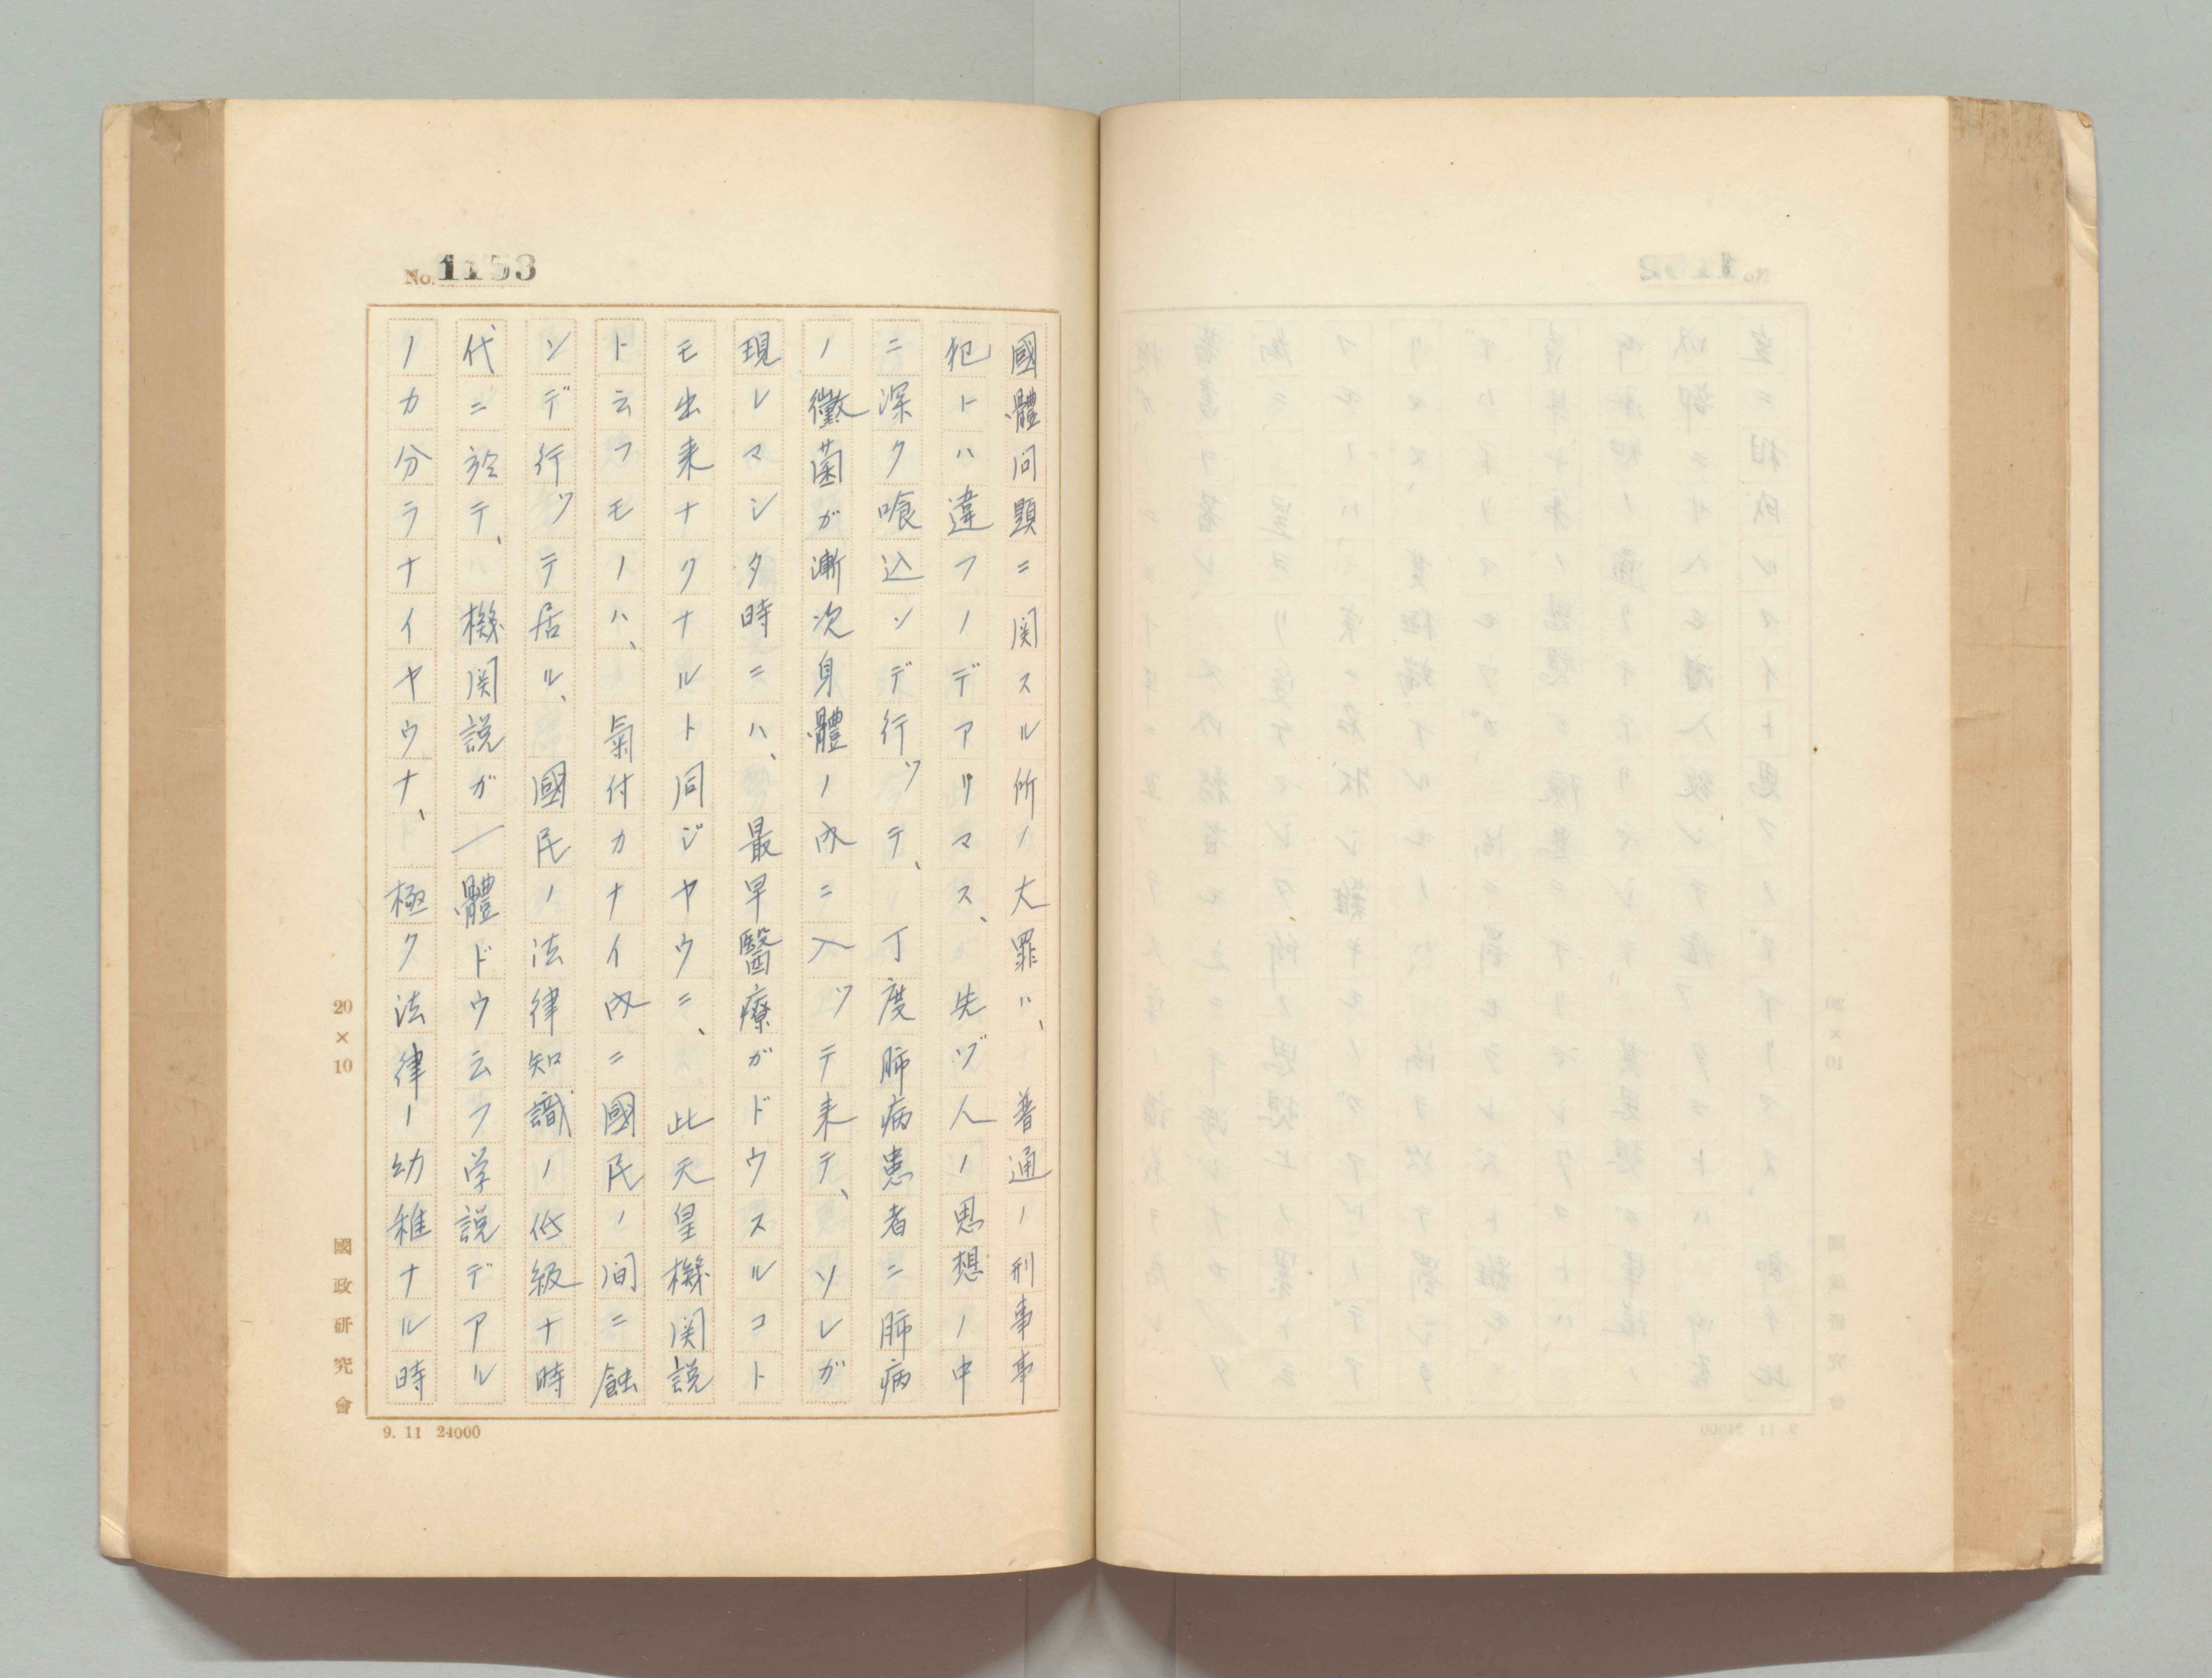 No. 1153
國體問題ニ関スル所ノ大罪ハ、普通ノ刑事事
犯トハ違フノデアリマス、先ヅ人ノ思想ノ中
ニ深ク喰込ンデ行ツテ、丁度肺病患者ニ肺病
ノ黴菌ガ漸次身體ノ内ニ入ツテ来テ、ソレガ
現レマシタ時ニハ、最早醫療ガドウスルコト
モ出来ナクナルト同ジヤウニ、此天皇機関説
ト云フモノハ、氣付カナイ内ニ國民ノ間ニ蝕
ンデ行ツテ居ル、國民ノ法律知識ノ低級ナ時
代ニ於テ、機関説ガ一體ドウ云フ学説デアル
ノカ分ラナイヤウナ、極ク法律ノ幼稚ナル時
20×10
國政研究會
9. 11 24000